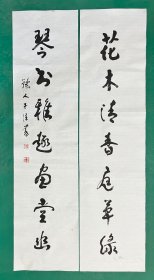 花木清香庭草绿
琴书雅趣画堂幽